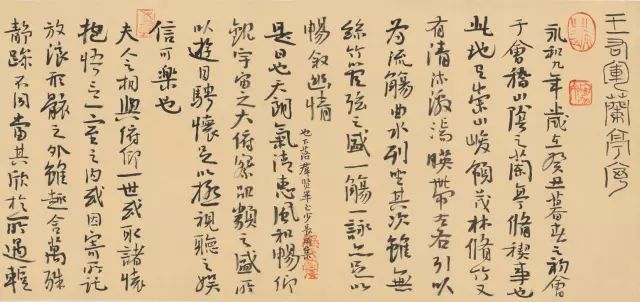 王右軍蘭亭序
永和九年歲在癸丑暮春之初會
于會稽山陰之蘭亭脩禊事也
此地有崇山峻領茂林脩竹又
有清流激湍暎帶左右引以
為流觴曲水列坐其次雖無
絲竹管弦之盛一觴一詠亦足以
暢敘幽情
也下落群賢畢至少長咸集
是日也天朗氣清惠風和暢仰
觀宇宙之大俯察品類之盛所
以遊目騁懷足以極視聽之娛
信可樂也
夫人之相與俯仰一世或取諸懷
抱悟言一室之內或因寄所託
放浪形骸之外雖趣舍萬殊
靜躁不同當其欣於所遇輒